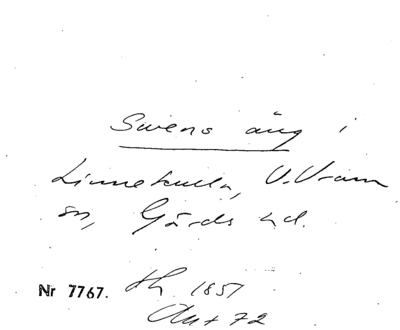 Swens äng i
Linnekulla, V. Vram
sn, Gärds hd.
Nr 7767. Lh 1851
Akt 72